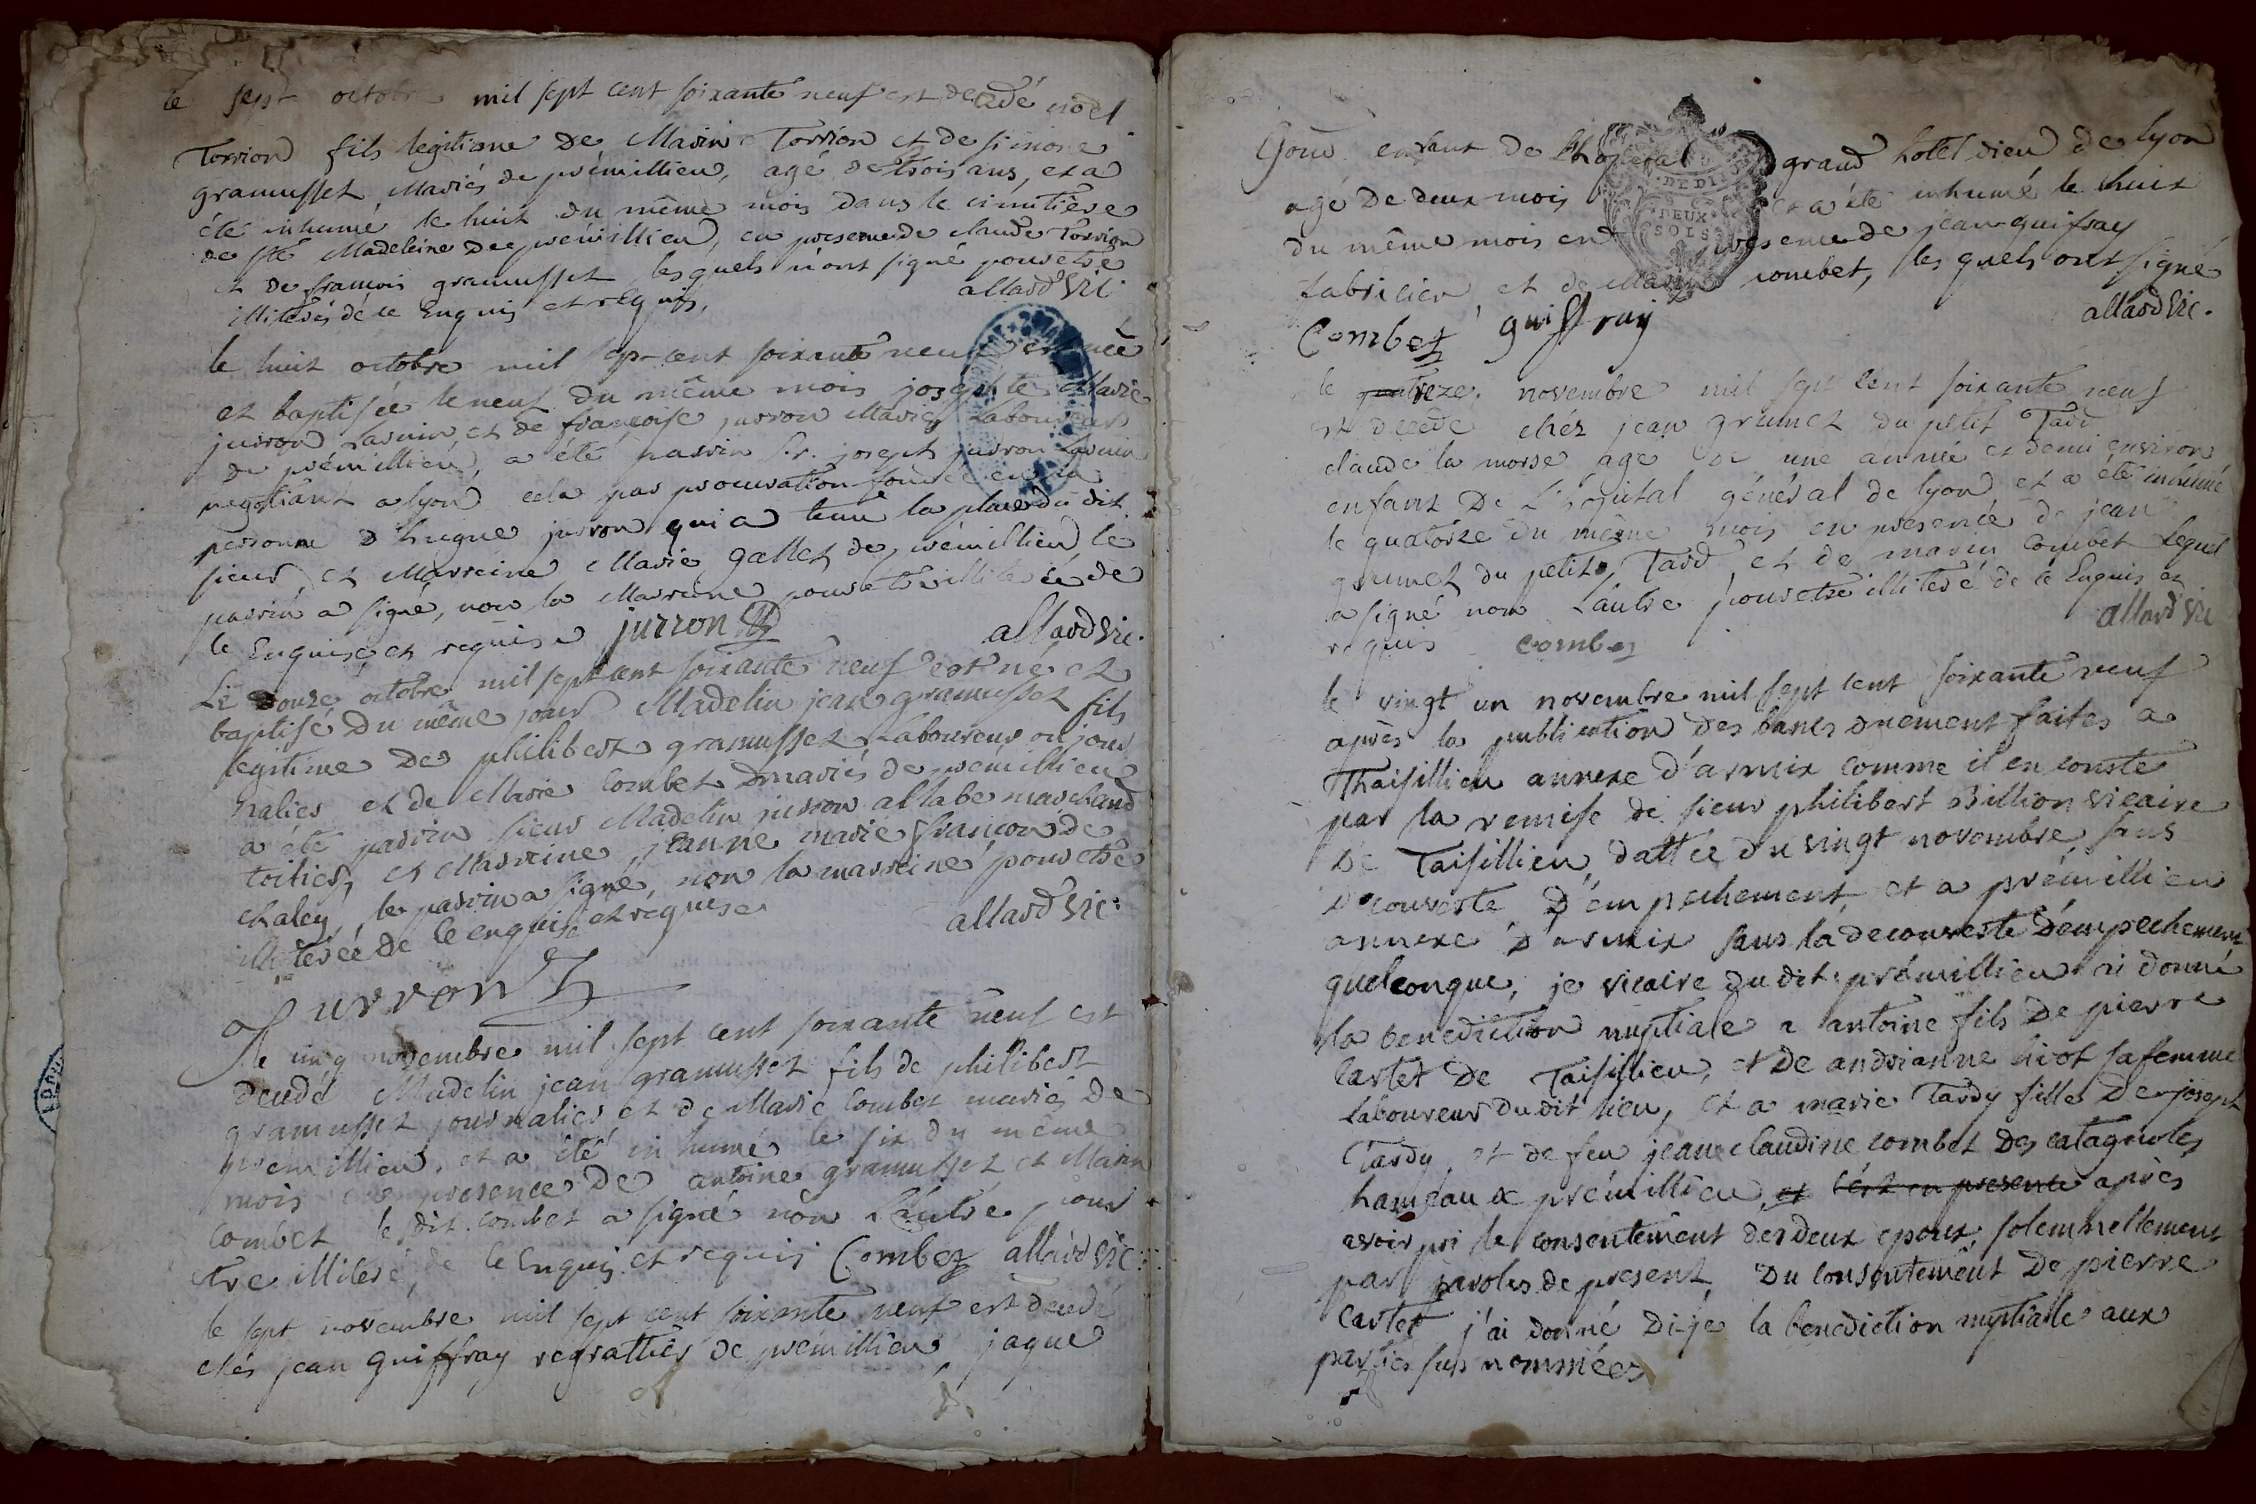 le sept octobre mil sept cent soixante neuf est decedé noël
Torrion fils legitime de Marin Torrion et de simone
gramusset, Mariés de prémillieu, agé de trois ans, et a
été inhumé le huit du même mois dans le cimitière
de ste Madeleine de prémillieu, en presence de claude Torrion
et de francois gramusset lesquels n'ont signé pour etre
illiterés de ce Enquis et requis. allard vic.
le huit octobre mil sept cent soixante neuf est née
et baptisée le neuf du même mois josephte Marie
jurron et de françoise jurron Mariés Laboureurs
de prémillieu, a été parrin Sr. joseph jurron
negotiant a lyon cela par procuration
personne d'hugue jurron qui a tenu la place du dit
sieur et Marreine Marie gallet de prémillieu, le
parrin a signé, non la Marreine pour etre illiterée de
ce Enquise et requise jurron allard vic.
Le douze octobre mil sept cent soixante neuf est né et
baptisé du même jour Madelin jean gramusset fils
legitime de philibert gramusset Laboureur ou jour
nalier et de Marie Combet mariés de prémillieu
a été parrin sieur Madelin jurron allabe marchand
toilier, et Marreine jeanne marie françon de
chaley, le parrin a signé, non la marreine pour etre
illiterée de ce enquise et requise allard vic.
Jurron
Le cinq novembre mil sept cent soixante neuf est
decedé Madelin jean gramusset fils de philibert
gramusset journalier et de Marie Combet mariés de
premillieu, et a été inhumé le six du même
mois en presence de antoine gramusset et Marin
Combet le dit combet a signé non L'autre pour
etre illiteré de ce Enquis et requis Combet allard vic.
le sept novembre mil sept cent soixante neuf est decedé
chés jean guiffray regrattier de prémillieu jaque
enfant de l'hopital grand hotel dieu de lyon
agé de deux mois et a été inhumé le huit
du même mois en presence de jean guifray
fabricien et de Marin combet, les quels ont signé
Combet guiffray allard vic.
DEUX
SOLS
le treze novembre mil sept cent soixante neuf
est decedé chéz jean grumet du petit Tard
claude la morse agé de une année et demi environ
enfant De L'hopital général de lyon et a été inhumé
le quatorze du même mois en presence de jean
grumet du petit Tard et de marin Combet lequel
a signé non L'autre pour etre illiteré de ce Enquis et
requis combet allard vic
le vingt un novembre mil sept cent soixante neuf
après la publication des bancs duement faites a
Thaisillieu annexe d'armix comme il en conste
par la remise de sieur philibert Billion vicaire
De Taisillieu, dattée du vingt novembre, sans
decouverte D'empechement, et a prémillieu
annexe D'armix sans la decouverte D'empechement
quelconque, je vicaire du dit prémillieu ai donné
la benediction nuptiale a antoine fils De pierre
Cartet De Taisillieu, et De andrianne sa femme
Laboureur du dit lieu, et a marie Tardy fille De joseph
Tardy et de feu jeane claudine combet Des catagnoles
hameau de prémillieu, et c'est en presence après
avoir pri le consentement des deux epoux, solemnellement
par paroles de present, Du consentement De pierre
Cartet j'ai donné Di-je la benediction nuptiale aux
parties sus nommées